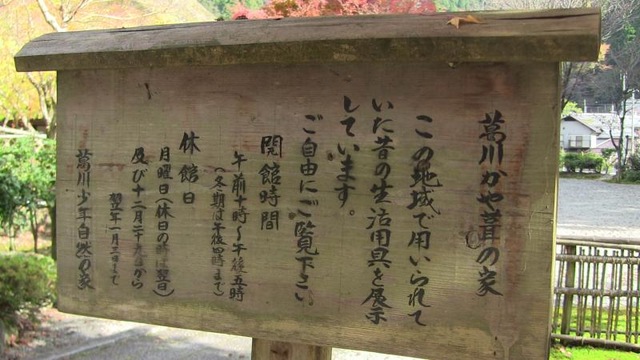 葛川かや葺の家
この地域で用いられて
いた昔の生活用具を展示
しています。
ご自由にご覧下さい
開館時間
午前十時〜午後五時
(冬期は午後四時まで)
休館日
月曜日(休日の時は翌日)
及び十二月二十
から
翌年一月三日まで
葛川少年自然の家